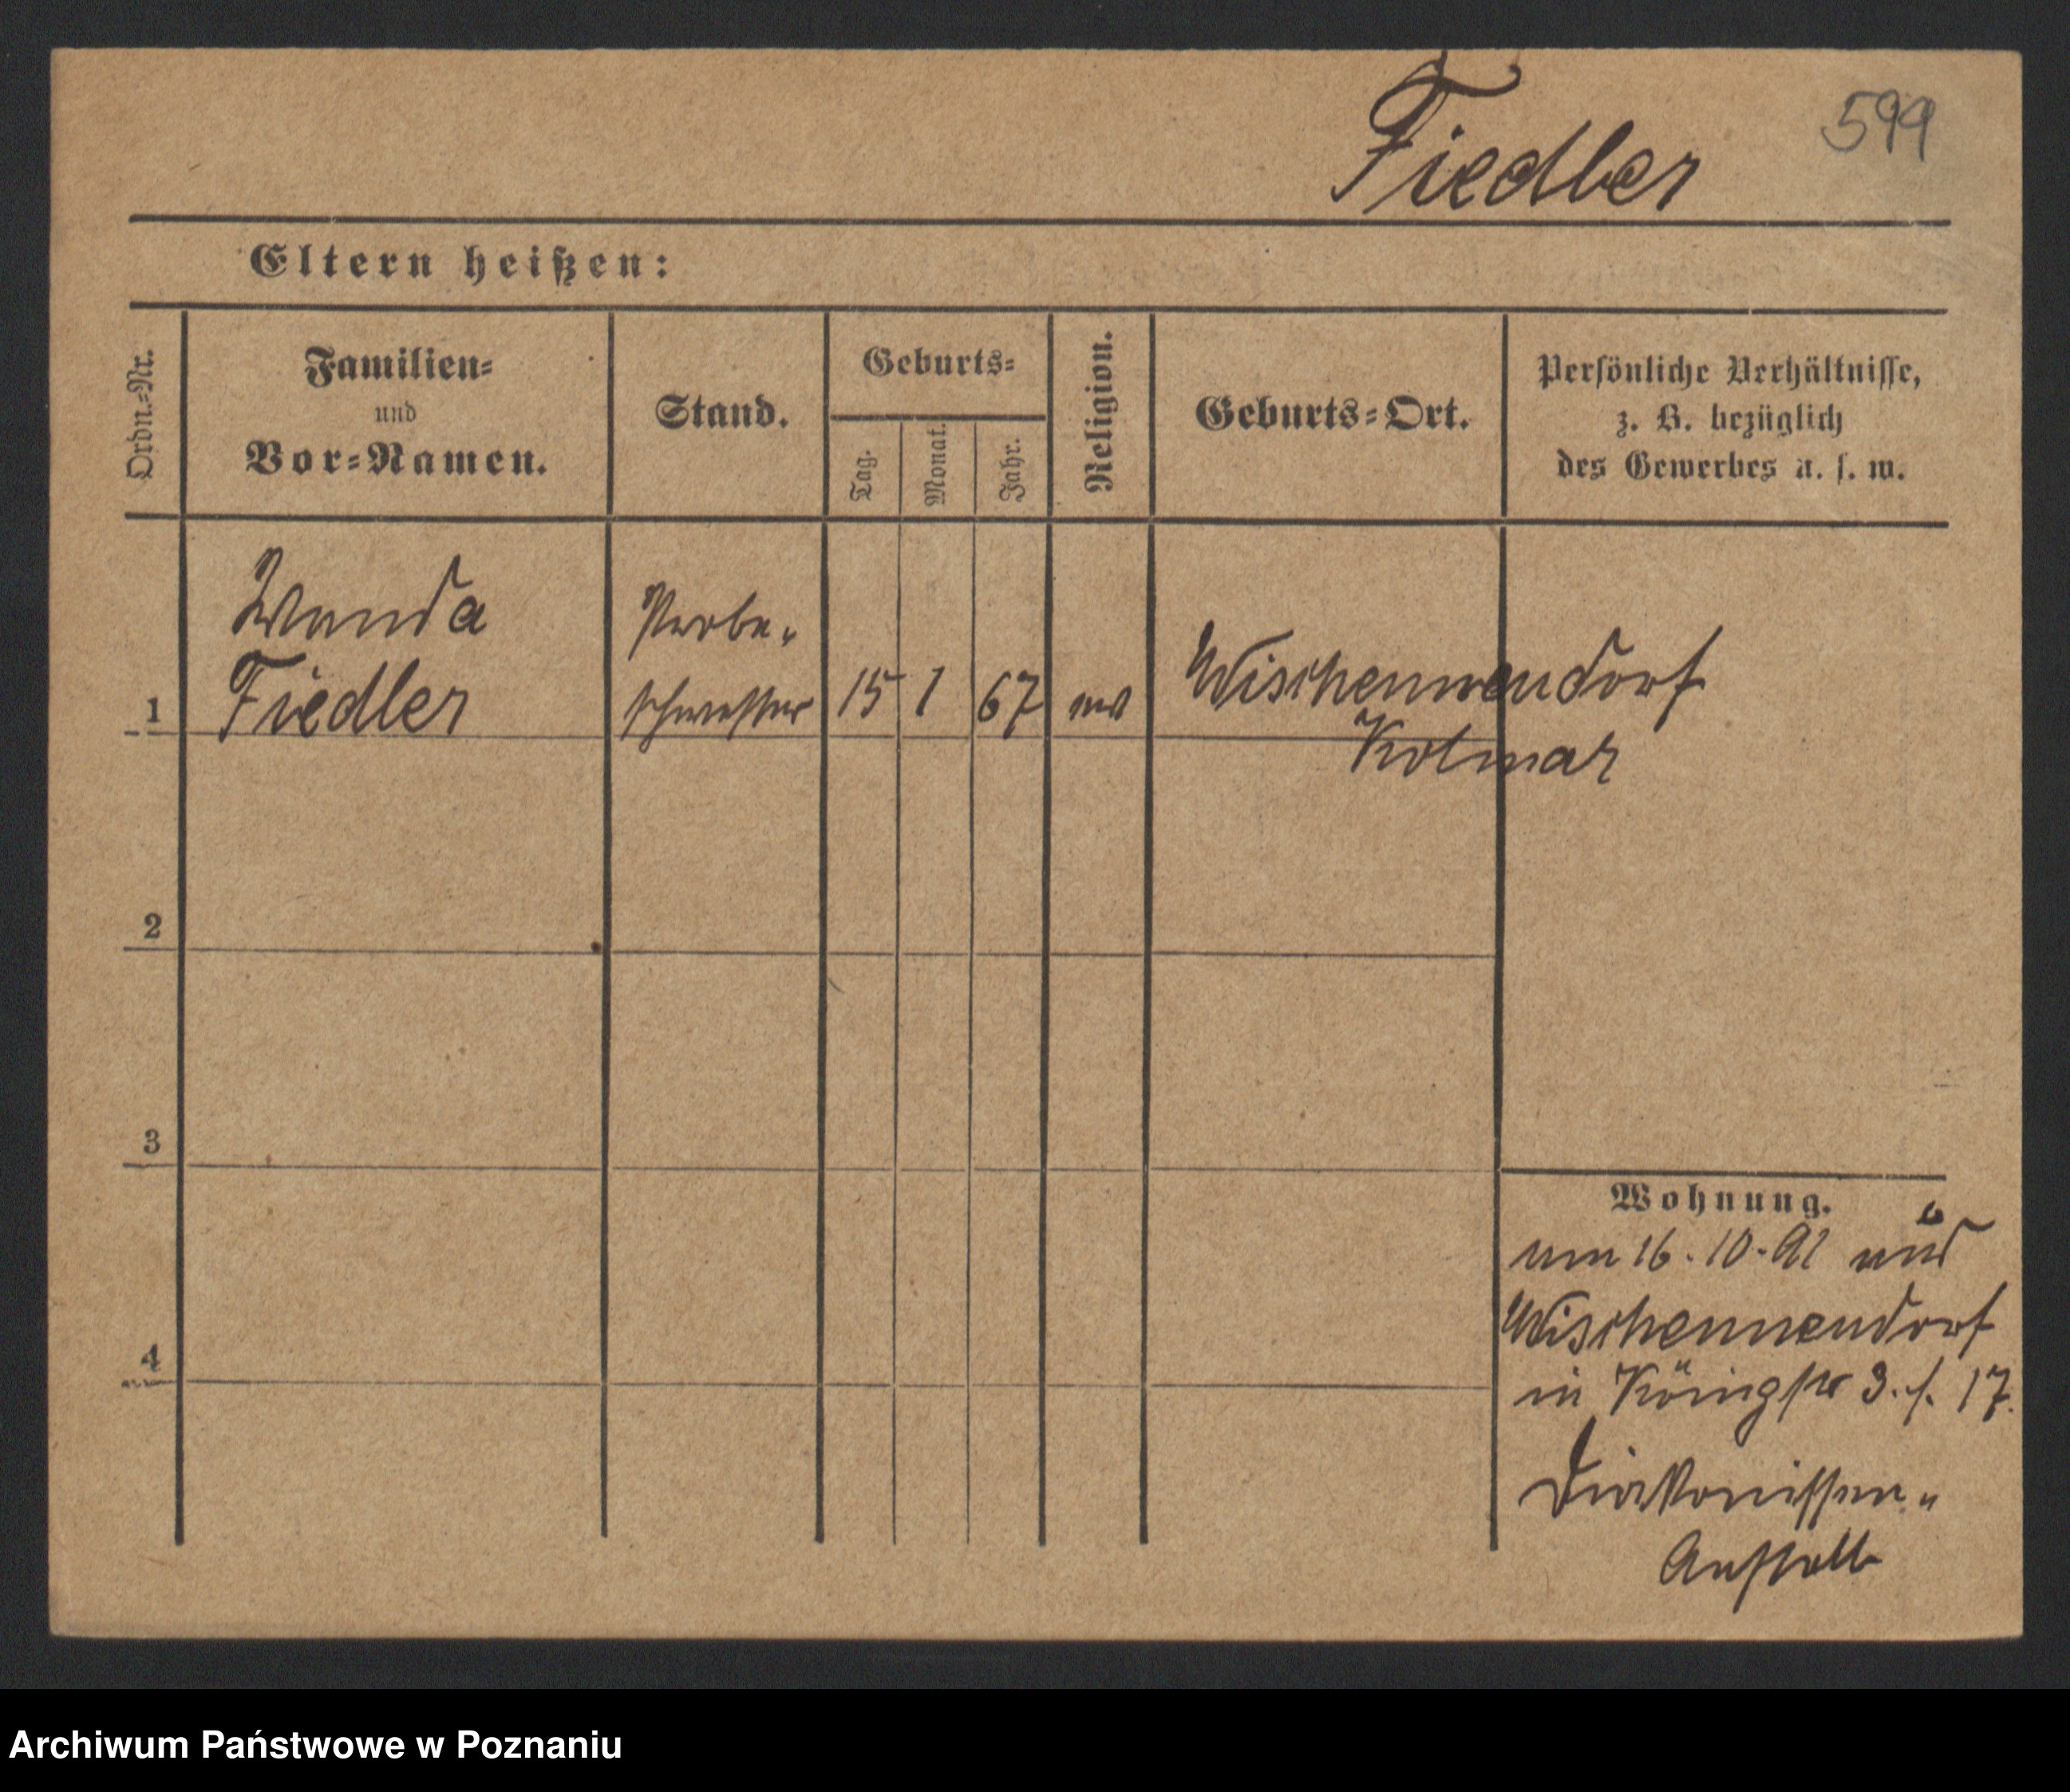 Fiedler
599
Eltern heißen:
Ordn.-Nr.
Familien-
und
Vor-Namen.
Stand.
Geburts-
Tag.
Monat.
Jahr.
Religion.
Geburts-Ort.
Persönliche Verhältnisse,
z. B. bezüglich
des Gewerbes u. s. w.
Wanda
Fiedler
Probe-
schwester
1
15
1
67
Kolmar
2
3
4
Wohnung.
am 16.10.91 aus
in Königstr 3. f. 17.
Diakonissen-
Anstalt
Archiwum Państwowe w Poznaniu